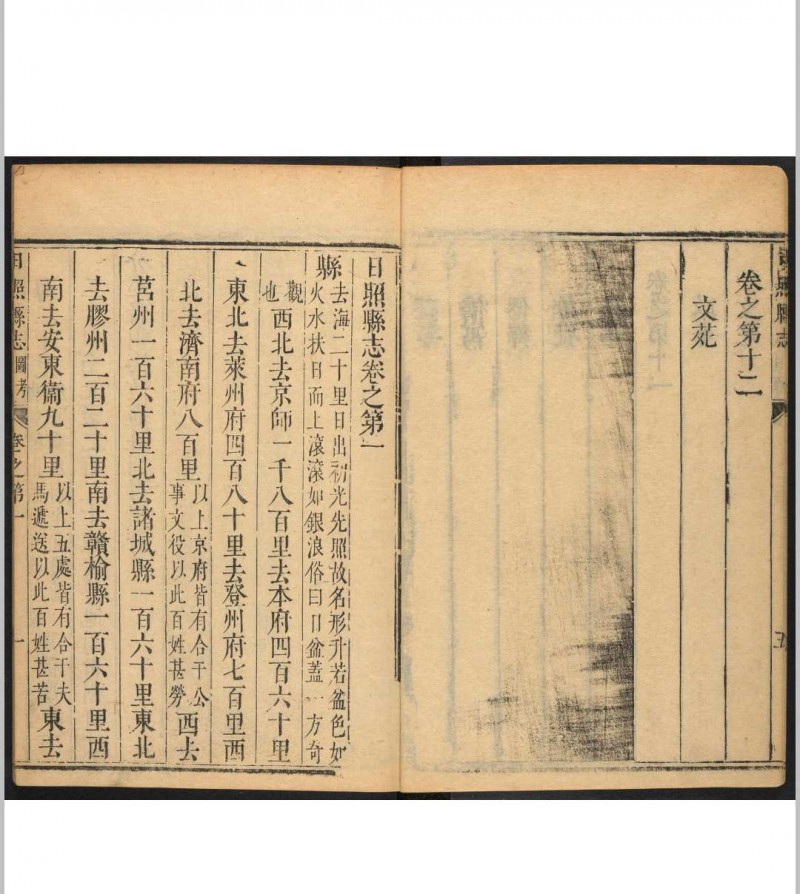 日照縣志
卷之第十二
文苑
五
日照縣志卷之第一
縣去海二十里日出初光先照故名形升若盆色如
火水扶日而上滾滾如銀浪俗曰日盆蓋一方奇
觀
也西北去京師一千八百里去本府四百六十里
東北去萊州府四百八十里去登州府七百里西
北去濟南府八百里以上京府皆有合干公
事文役以此百姓甚勞西去
莒州一百六十里北去諸城縣一百六十里東北
去膠州二百二十里南去贛榆縣一百六十里西
南去安東衞九十里以上五處皆有合干夫
馬遞送以此百姓甚苦東去
日照縣志圖考 卷之第一 一